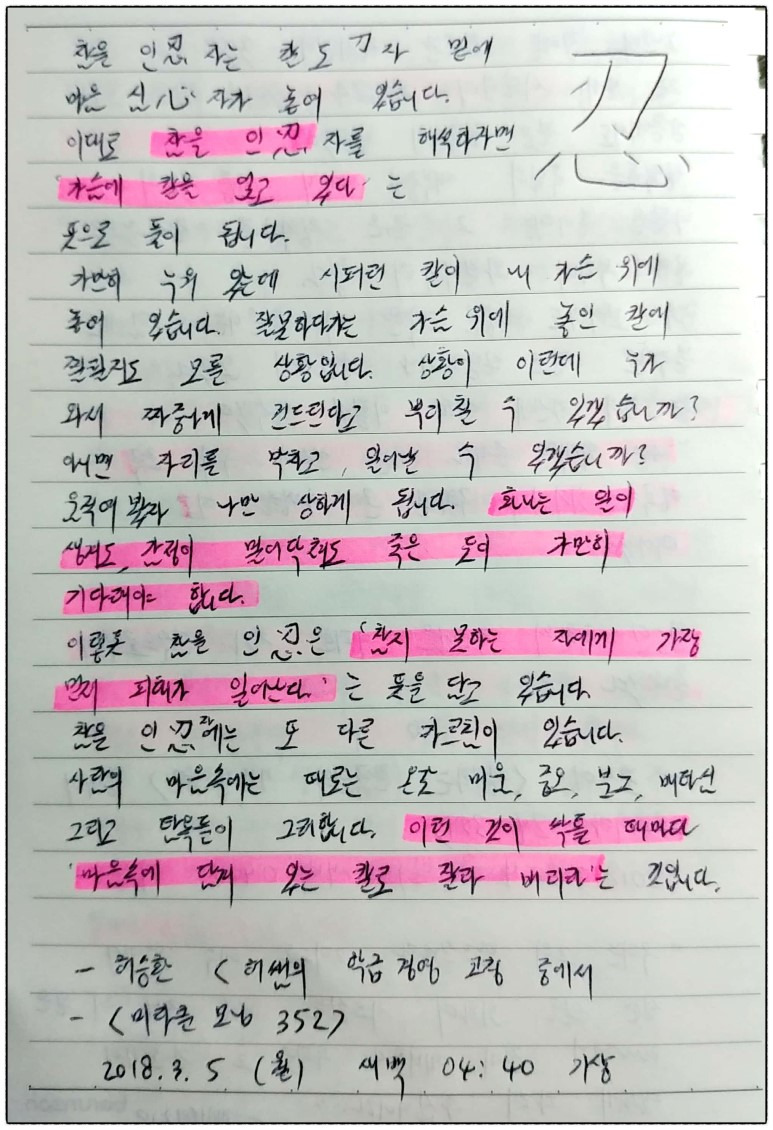 참을 인忍 자는 칼 도刀자 밑에
마음 심心 자가 놓여 있습니다.
忍
이대로 참을 인忍 자를 해석하자면
'가슴에 칼을 얹고 있다'는
뜻으로 풀이 됩니다.
가만히 누워 있는데 시퍼런 칼이 내 가슴 위에
놓여 있습니다. 잘못하다가는 가슴 위에 놓인 칼에
찔릴지도 모를 상황입니다. 상황이 이런데 누가
와서 짜증나게 건드린다고 뿌리칠 수 있겠습니까?
아니면 자리를 박차고, 일어날 수 있겠습니까?
움직여봤자 나만 상하게 됩니다. 화나는 일이
생겨도, 감정이 밀어닥쳐도 죽은 듯이 가만히
기다려야 합니다.
이렇듯 참을 인忍은 '참지 못하는 자에게 가장
먼저 피해가 일어난다.'는 뜻을 담고 있습니다.
참을 인忍자에는 또 다른 가르침이 있습니다.
사람의 마음속에는 때로는 온갖 미움, 증오, 분노, 배타심
그리고 탐욕들이 그러합니다. 이런 것이 싹틀 때마다
'마음속에 담겨 있는 칼로 잘라 버리라'는 것입니다.
- 허승환 <허쌤의 학급경영 코칭 중에서
- <미라클 모닝 352>
2018.3.5 (월) 새벽 04:40 기상